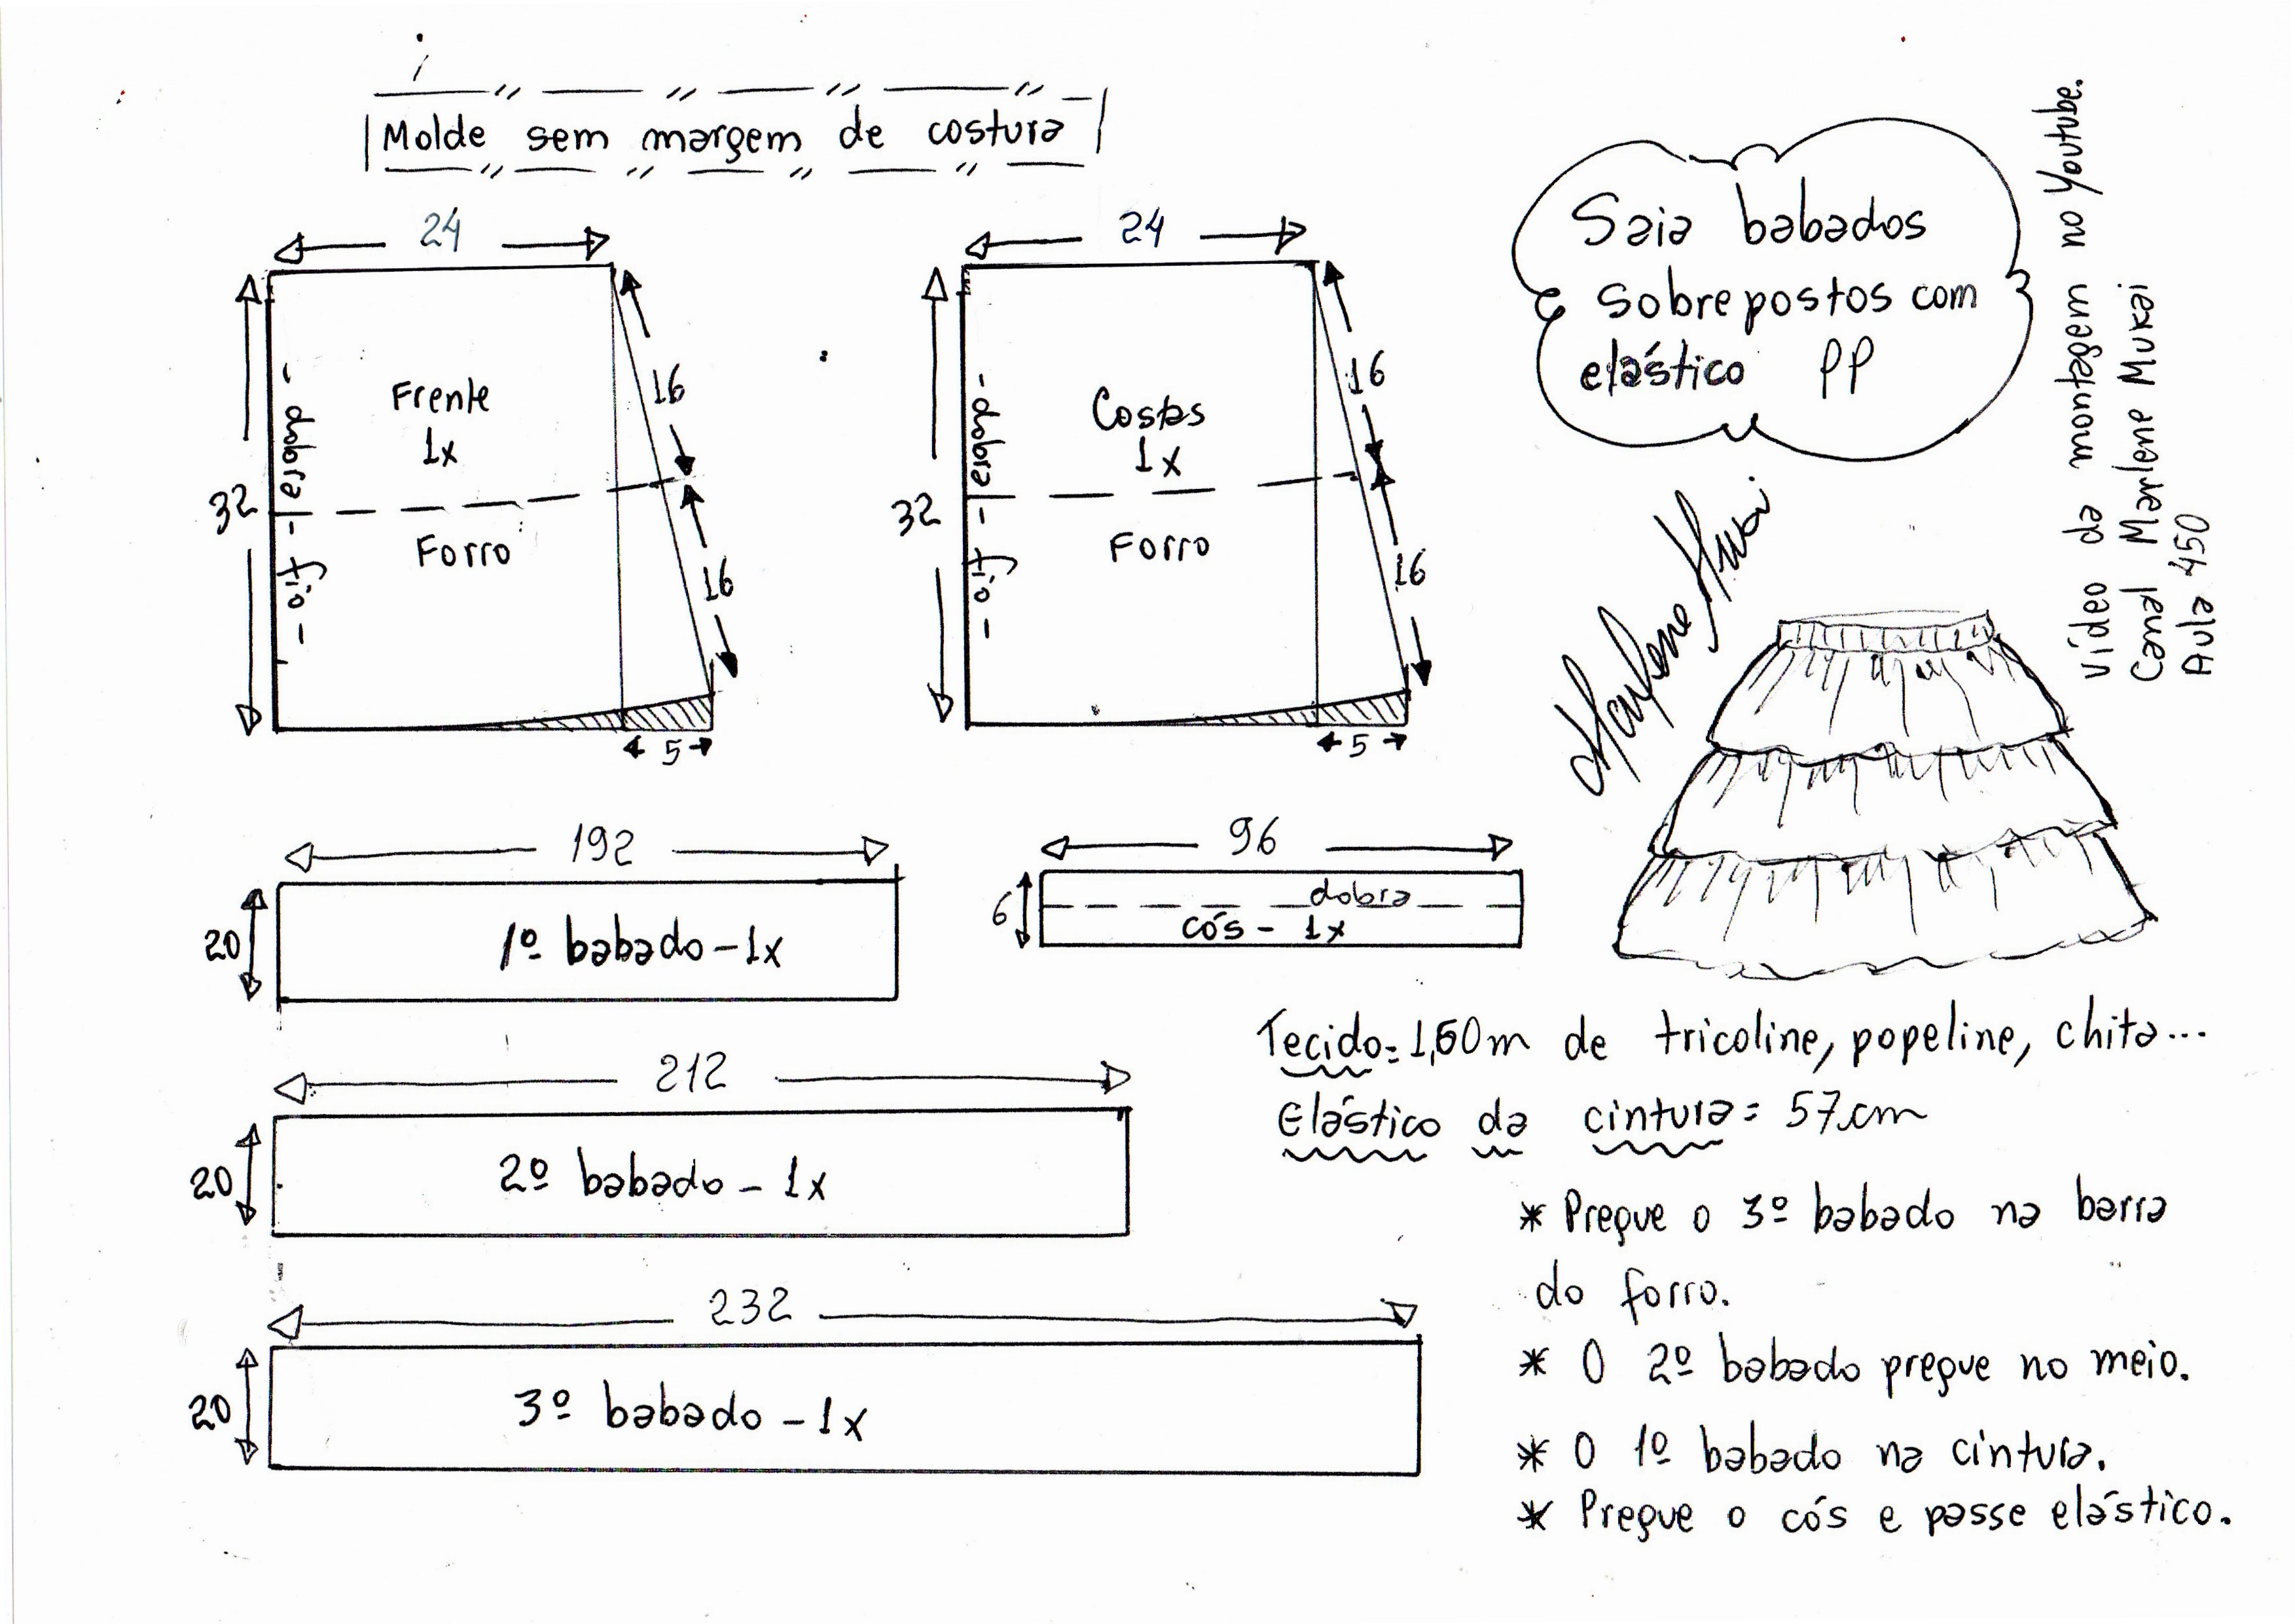 Molde sem margem de costura
24
32
16
16
5
Frente
1x
Forro
- dobra - fio -
24
32
16
16
5
Costas
1x
Forro
- dobra - fio -
Saia babados
sobrepostos com
elástico PP
Vídeo da montagem no Youtube.
Canal Marlene Mukai
Aula 450
Marlene Mukai
192
20
1º babado - 1x
96
6
dobra
cós - 1x
212
20
2º babado - 1x
232
20
3º babado - 1x
Tecido= 1,50m de tricoline, popeline, chita...
Elástico da cintura= 57cm
* Pregue o 3º babado na barra
do forro.
* O 2º babado pregue no meio.
* O 1º babado na cintura.
* Pregue o cós e passe elástico.